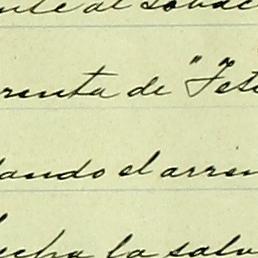 nte al
renta de "Fet
ando el arren
echa la salv